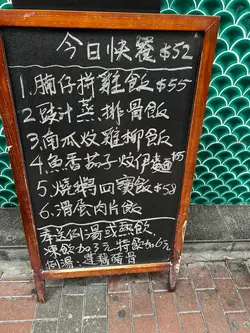 今日快餐 $52
1. 腩仔拼雞飯 $55
2. 豉汁蒸排骨飯
3. 南瓜炆雞柳飯
4. 魚香茄子炆伊麵 $55
5. 燒鴨回鑊飯 $58
6. 滑蛋肉片飯
奉送例湯或熱飲
凍飲加3元 特飲加6元
例湯：蓮藕豬骨